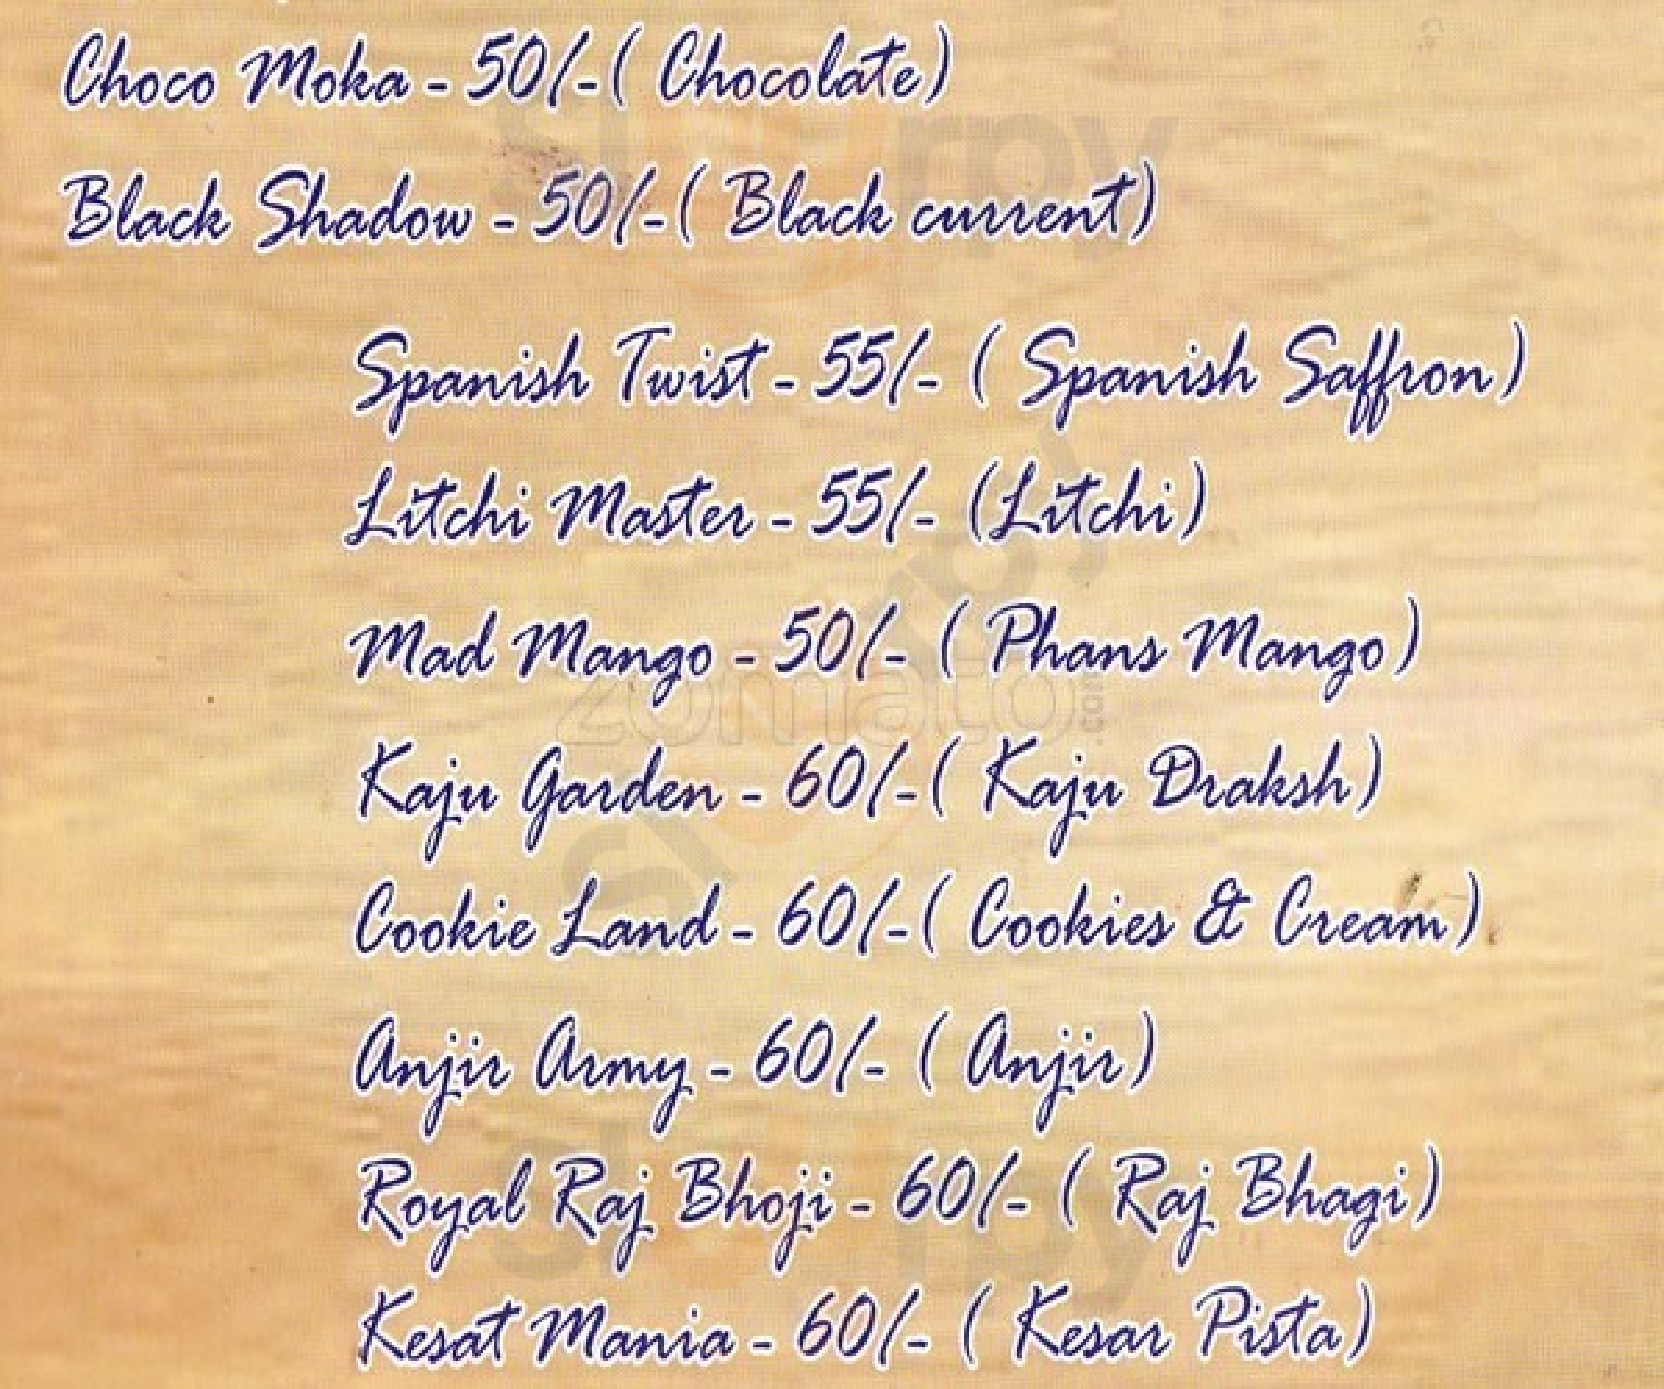 Choco Moka - 50/-( Chocolate)
Black Shadow - 50/-( Black current)
Spanish Twist - 55/- ( Spanish Saffron)
Litchi Master - 55/- (Litchi)
Mad Mango - 50/- ( Phans Mango)
zomato.com
Kaju Garden - 60/-( Kaju Draksh)
Cookie Land - 60/-( Cookies & Cream)
Anjir Army - 60/- ( Anjir)
Royal Raj Bhoji - 60/- ( Raj Bhagi)
Kesat Mania - 60/- ( Kesar Pista)